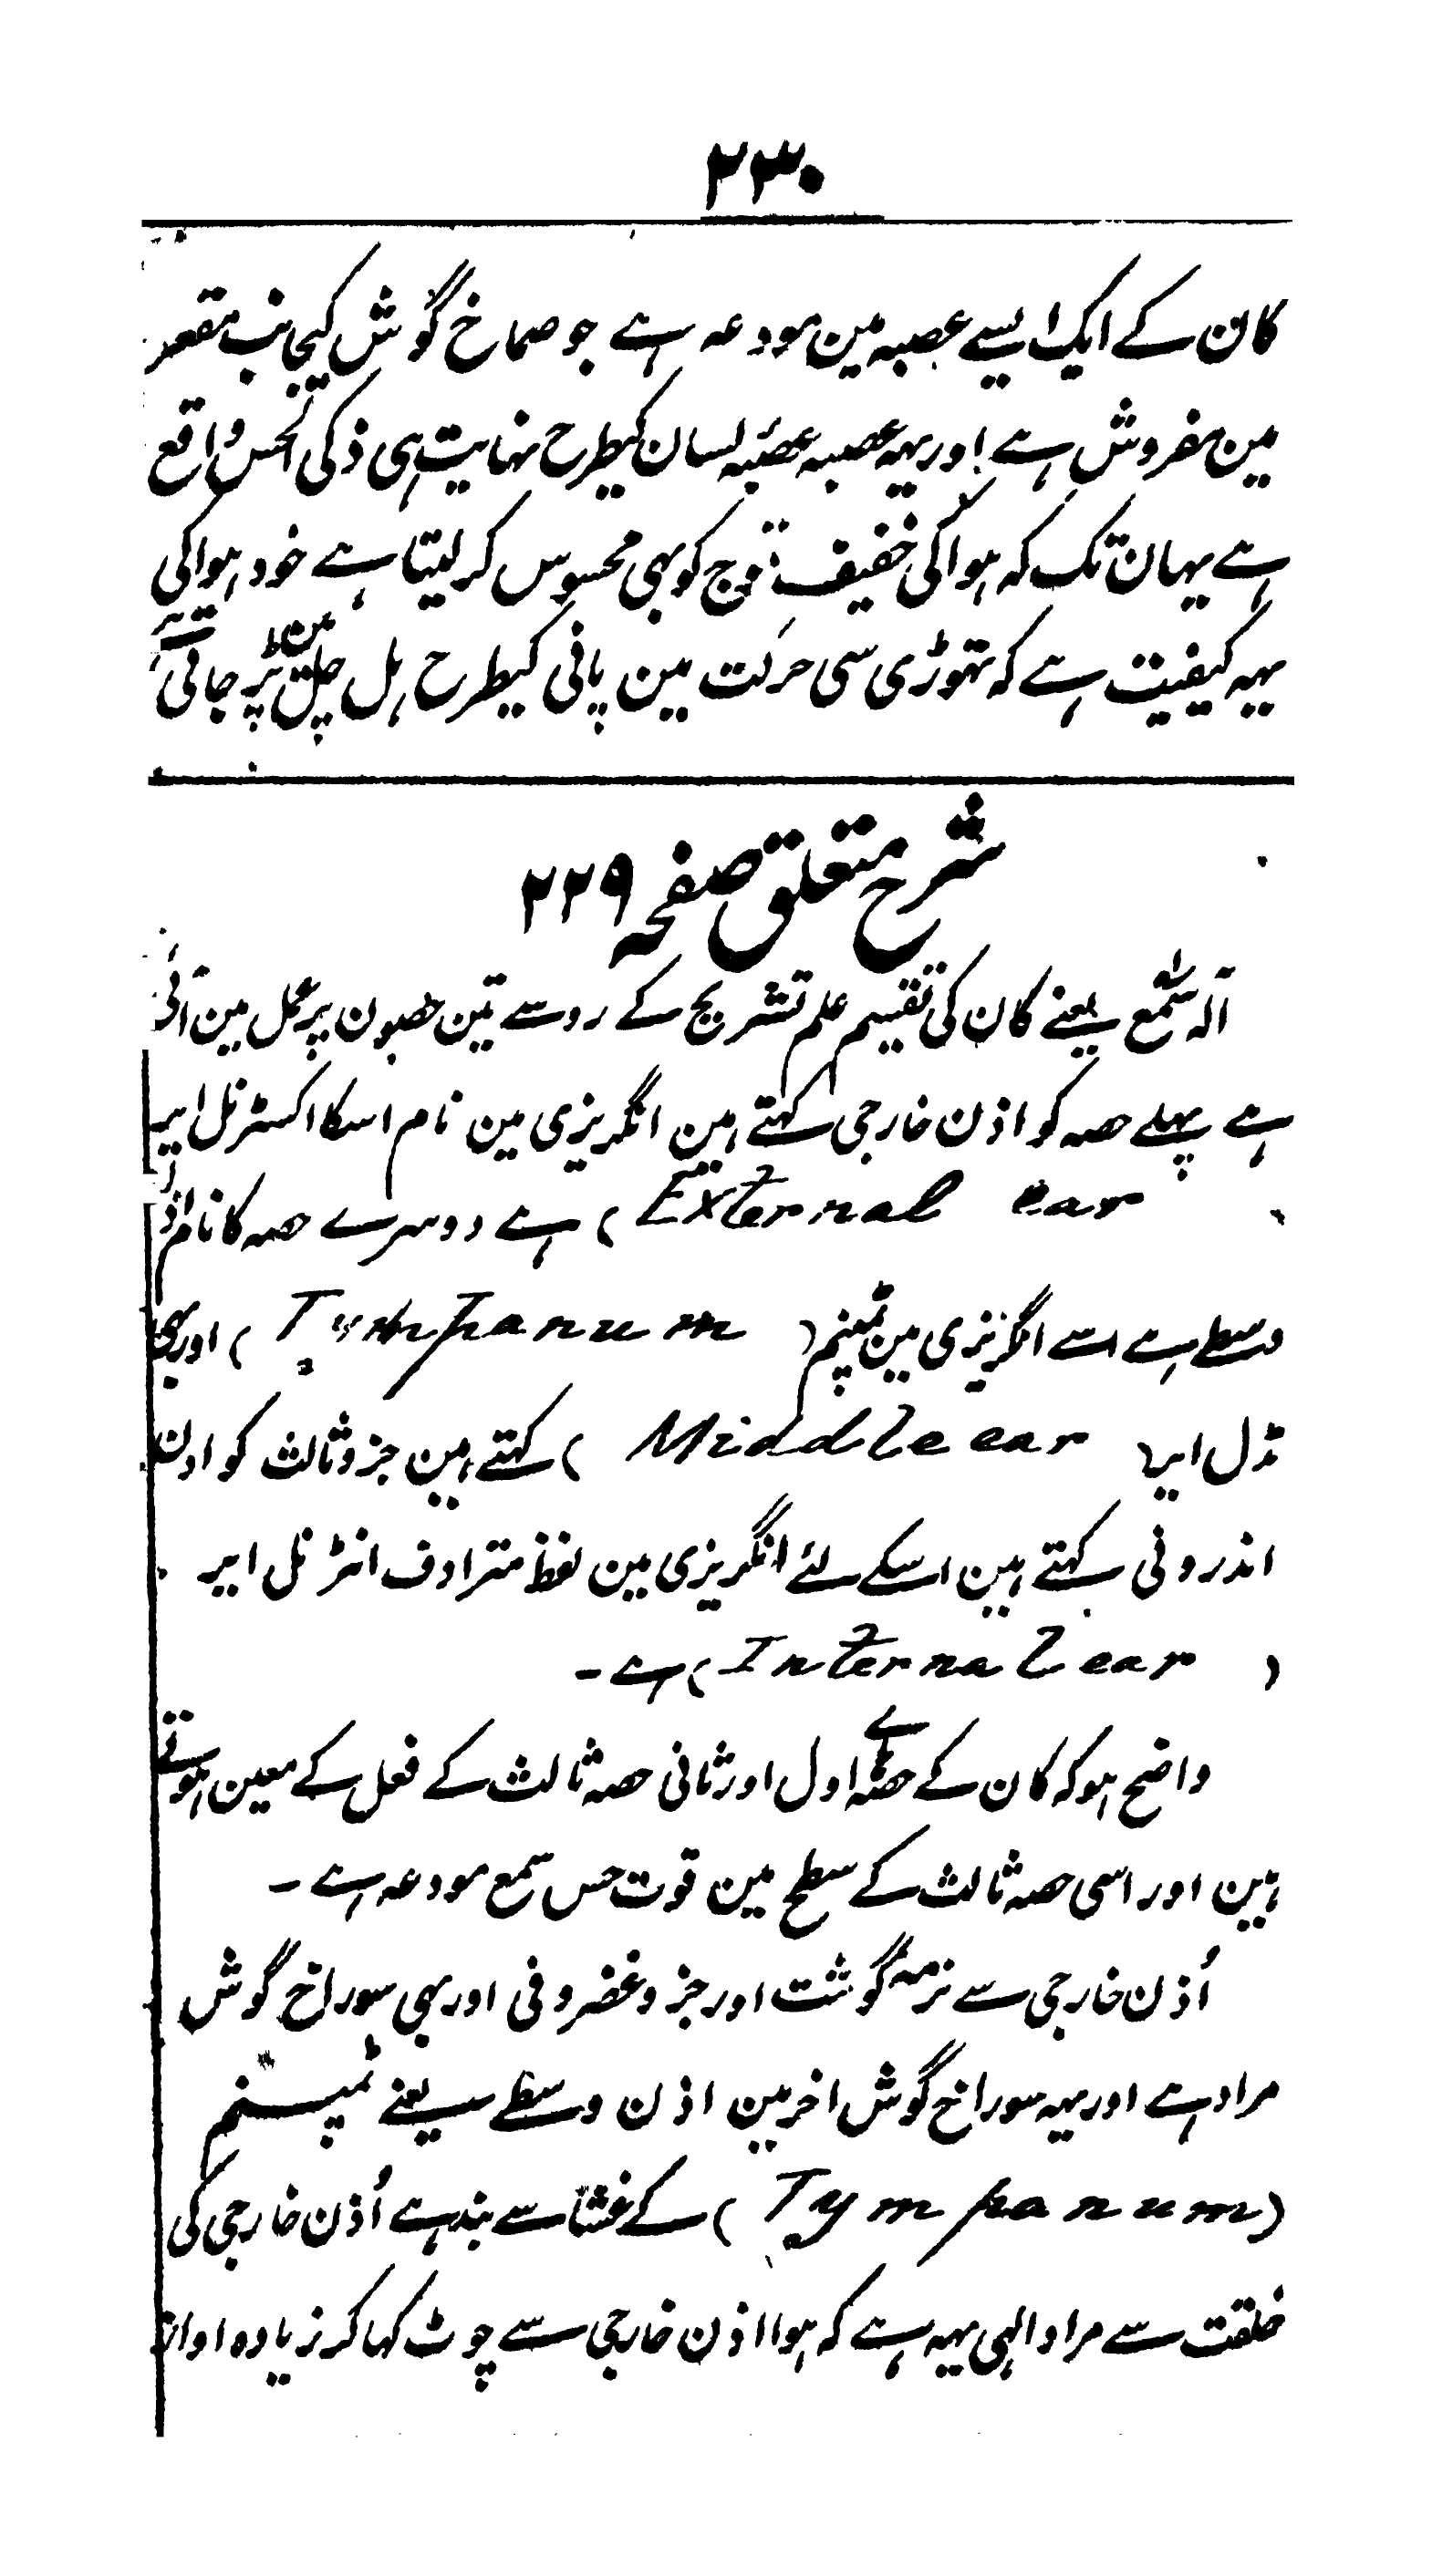 ۲۳۰
کان کے ایک ایسے عصبہ مین مودعہ ہے جو صماخ گوش کیجانب مقعر
مین مفروش ہے اور یہہ عصبہ عصبۂ لسان کیطرح نہایت ہی ذکی الحس واقع
ہے یہان تک کہ ہوا کی خفیف تموج کو بھی محسوس کر لیتا ہے خود ہوا کی
یہہ کیفیت ہے کہ تھوڑی سی حرکت مین پانی کیطرح ہل چل مین پڑ جاتی ہے
شرح متعلق صفحہ ۲۲۹
آلہ سمع یعنے کان کی تقسیم علم تشریح کے رو سے تین حصون پر عمل مین آئی
ہے پہلے حصہ کو اذن خارجی کہتے ہین انگریزی مین نام اسکا اکسٹرنل ایر
( External ear ) ہے دوسرے حصہ کا نام اذن
وسطے ہے اسے انگریزی مین ٹمپنم ( Tympanum ) اور بھی
مڈل ایر ( Middle ear ) کہتے ہین جزو ثالث کو اذن
اندرونی کہتے ہین اسکے لئے انگریزی مین لفظ مترادف انٹرنل ایر
( Internal ear ) ہے ۔
واضح ہو کہ کان کے حصہٴ اول اور ثانی حصہ ثالث کے فعل کے معین ہوتے
ہین اور اسی حصہ ثالث کے سطح مین قوت حس سمع مودعہ ہے ۔
اُذن خارجی سے نرمہ گوشت اور جزو غضروفی اور بھی سوراخ گوش
مراد ہے اور یہہ سوراخ گوش اخر مین اذن وسطے یعنے ٹمپنم
(Tympanum) کے غشا سے بند ہے اُذن خارجی کی
خلقت سے مراد الہی یہہ ہے کہ ہوا اذن خارجی سے چوٹ کھا کر زیادہ اواز